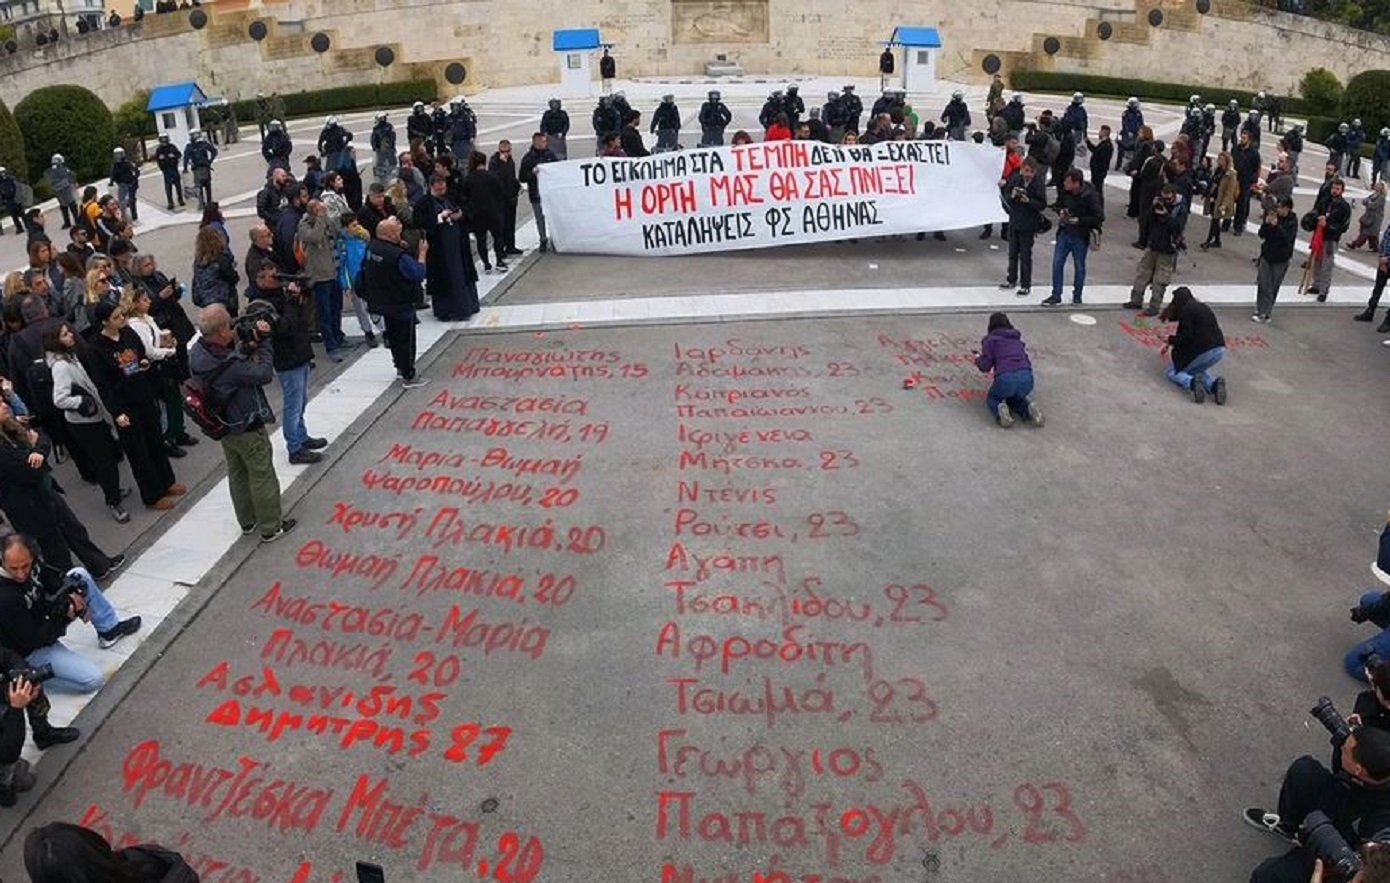 ΤΟ ΕΓΚΛΗΜΑ ΣΤΑ ΤΕΜΠΗ ΔΕΝ ΘΑ ΞΕΧΑΣΤΕΙ
Η ΟΡΓΗ ΜΑΣ ΘΑ ΣΑΣ ΠΝΙΞΕΙ
ΚΑΤΑΛΗΨΕΙΣ ΦΣ ΑΘΗΝΑΣ
Παναγιώτης
Μπουρνάζης, 15
Αναστασία
Παπαγγελή, 19
Μαρία-Θωμαή
Ψαροπούλου, 20
Χρυσή Πλακιά, 20
Θωμαή Πλακιά, 20
Αναστασία-Μαρία
Πλακιά, 20
Ασλανίδης
Δημήτρης 27
Φραντζέσκα Μπέζα, 20
Ιορδάνης
Αδαμάκης, 23
Κυπριανός
Παπαϊωάννου, 23
Ιφιγένεια
Μήτσκα, 23
Ντένις
Ρούτσι, 23
Αγάπη
Τσακλίδου, 23
Αφροδίτη
Τσιωμά, 23
Γεώργιος
Παπάζογλου, 23